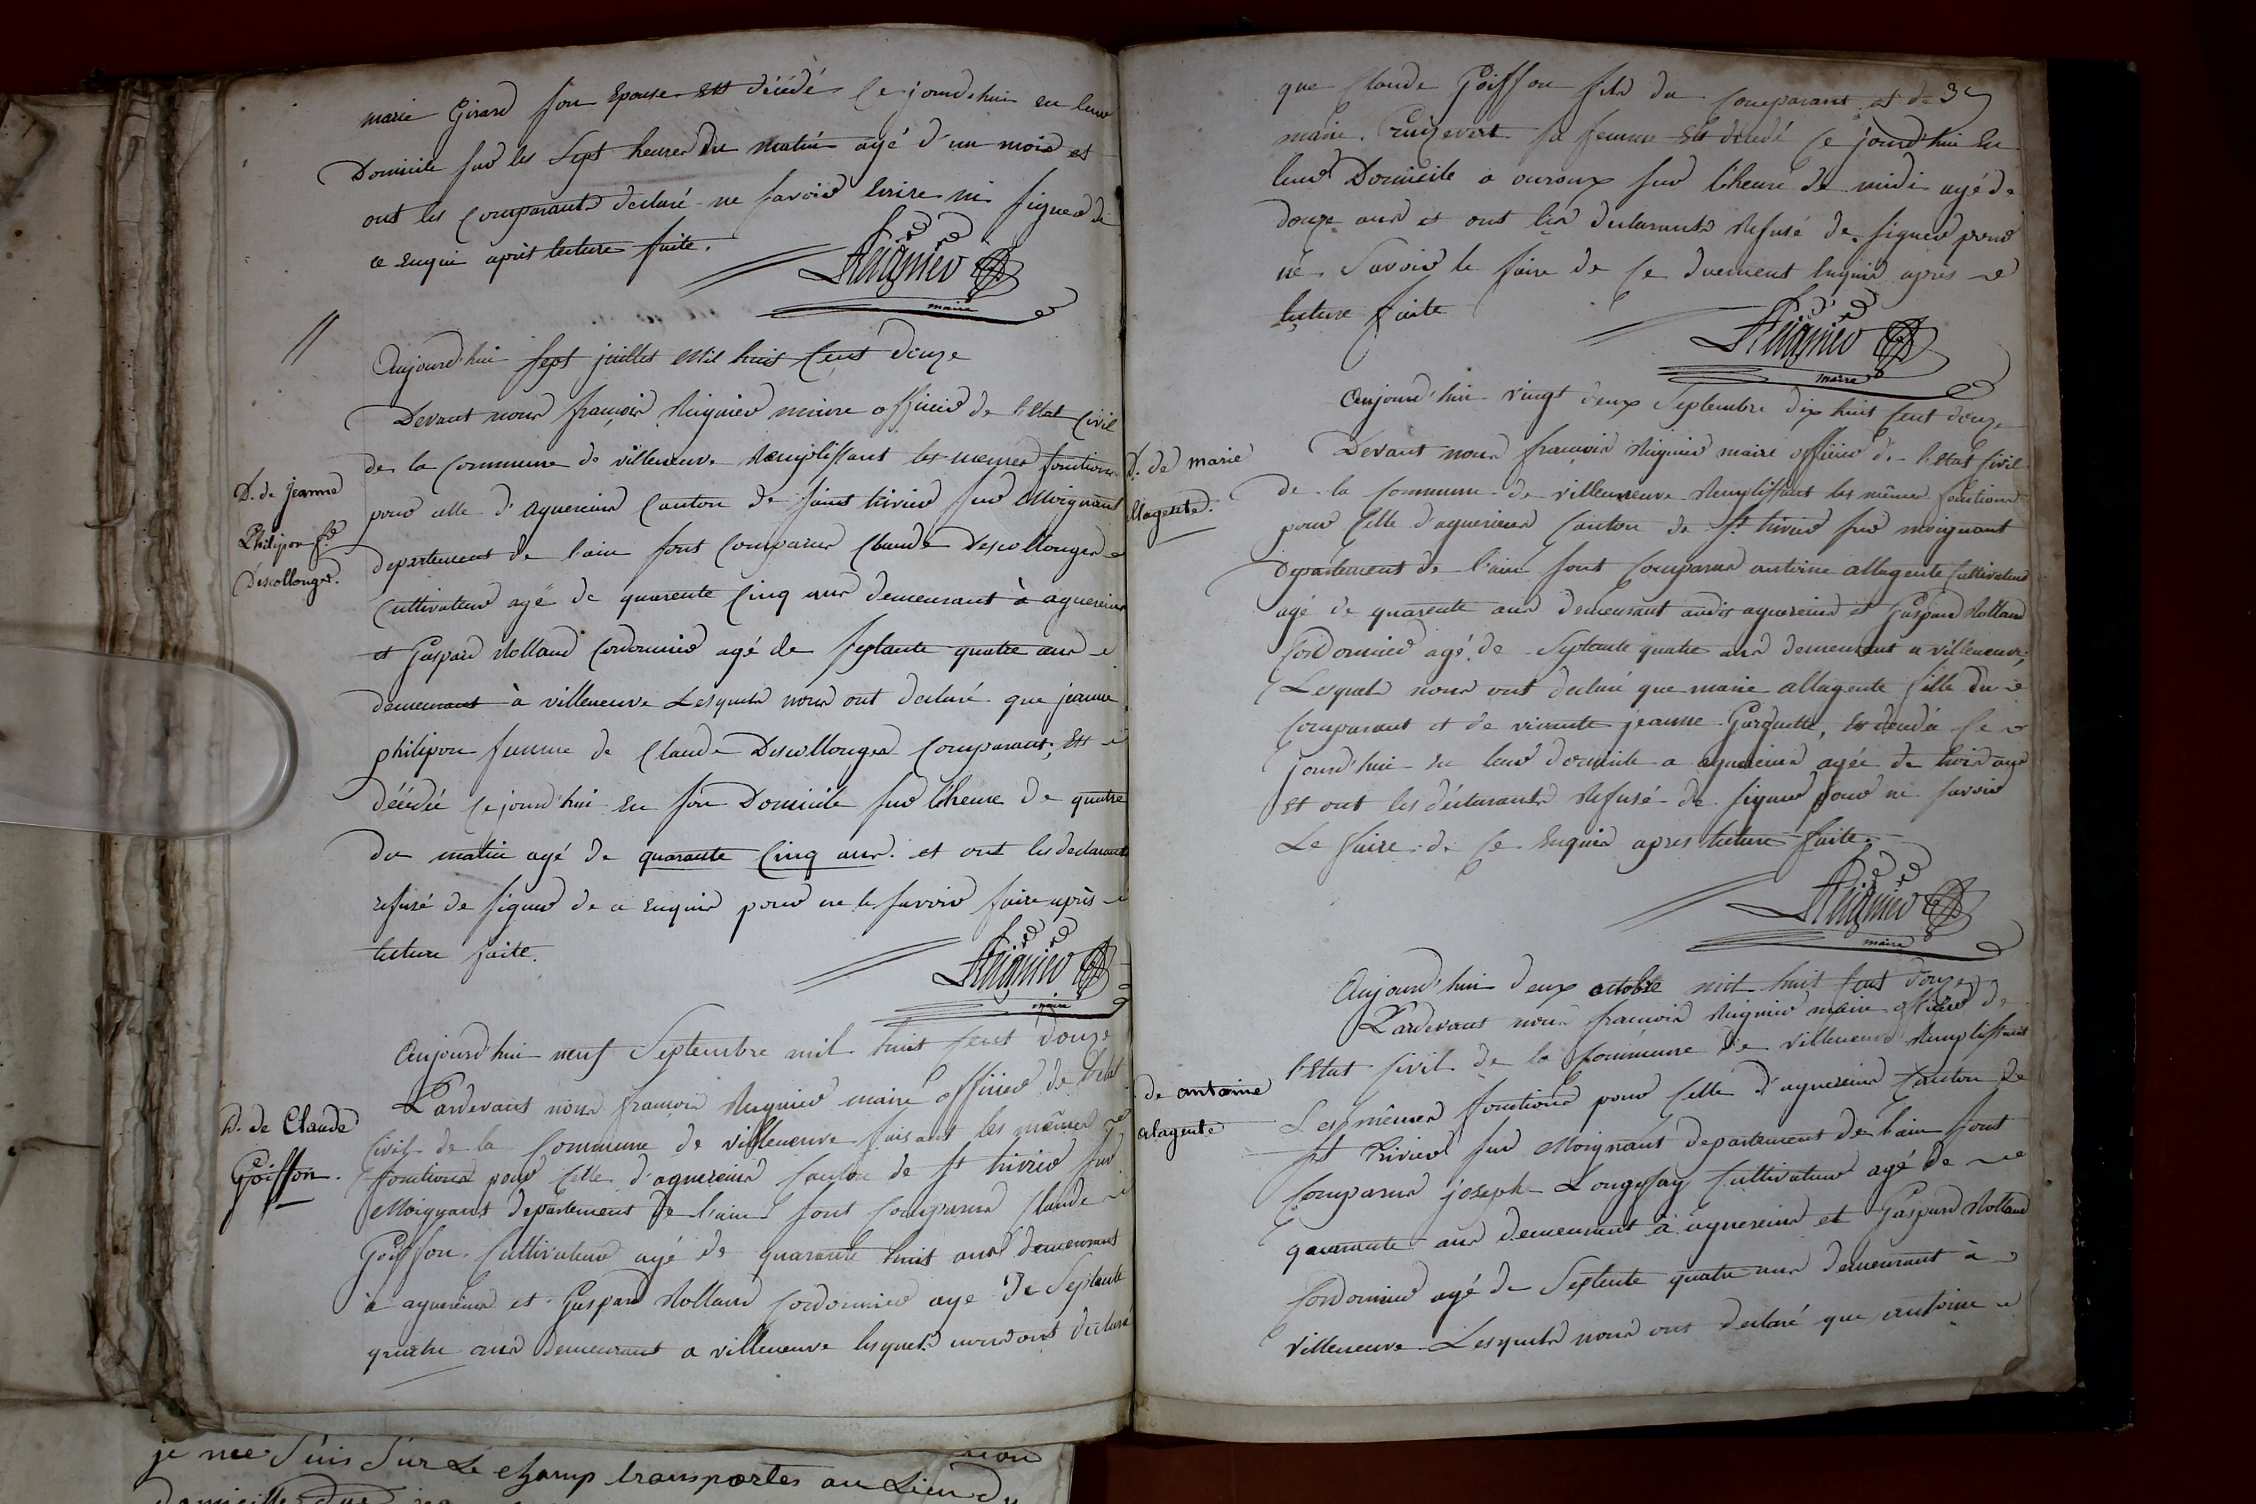 marie Girard son Epouse est décédé ce jourd'hui en leur
Domicile sur les Sept heures du Matin agé d'un mois et
ont les comparants declaré ne savoir Ecrire ni signer de
ce Enquis après lecture faite.
Réignier
maire
Aujourd'hui sept juillet Mil huit Cent douze
Devant nous françois Reignier maire officier de l'Etat Civil
D. de jeanne
Philipon f.e
Descollonges.
de la Commune de villeneuve Remplissant les memes fonctions
pour celle d'agnereins Canton de saint trivier sur Moignant
departement de l'ain sont Comparus Claude Descollonges
Cultivateur agé de quarente Cinq ans demeurant à agnereins
et Gaspard Rolland Cordonnier agé de septante quatre ans
demeurant à villeneuve Lesquels nous ont declaré que jeanne
philipon femme de Claude Descollonges Comparant, Est
décédée ce jourd'hui En son Domicile sur l'heure de quatre
du matin agé de quarante Cinq ans. et ont les declarants
refusé de signer de ce enquis pour ne le savoir faire après
lecture faite.
Réignier
maire
Aujourd'hui neuf Septembre mil huit cent douze
Pardevant nous françois Reignier maire officier de l'état
D. de Claude
Goiffon.
Civil de la Commune de villeneuve faisant les mêmes
fonctions pour Celle d'agnereins Canton de St trivier sur
Moignant departement de l'ain sont Comparus Claude
Goiffon Cultivateur agé de quarante huit ans demeurant
à agnereins et Gaspard Rolland Cordonnier agé De Septante
quatre ans demeurant a villeneuve lesquels nous ont declaré
que Claude Goiffon fils du Comparant et de
marie sa femme Est décédé ce jourd'hui En
leur Domicile a ouroux sur l'heure de midi agé de
douze ans et ont les declarants Refusé de signer pour
ne Savoir le faire de Ce duement Enquis après
lecture faite
Réignier
maire
Aujourd'hui vingt deux Septembre dix huit Cent douze
D. de marie
allagente.
Devant nous françois Reignier maire officier de l'Etat Civil
de la Commune de villeneuve Remplissant les mêmes fonctions
pour Celle d'agnereins Canton de St trivier sur moignant
Département de l'ain sont Comparus antoine allagente Cultivateur
agé de quarente ans demeurant audit agnereins et Gaspard Rolland
Cordonnier agé de Septante quatre ans demeurant a villeneuve,
Lesquels nous ont declaré que marie allagente fille du
Comparant et de vivante jeanne est décédée Ce
jourd'hui en leur domicile a agnereins agée de trois ans
Et ont les déclarants Refusé de signer pour ne savoir
Le faire de Ce Enquis apres lecture faite.
Réignier
maire
Aujourd'hui deux octobre mil huit Cent douze
Pardevant nous françois Reignier maire officier de
de antoine
alagente
l'Etat Civil de la Commune de villeneuve Remplissant
Les mêmes fonctions pour Celle d'agnereins Canton de
St trivier sur Moignant departement de l'ain sont
Comparus joseph Longefay Cultivateur agé de
quarante ans demeurant à agnereins et Gaspard Rolland
Cordonnier agé de Septente quatre ans demeurant à
villeneuve Lesquels nous ont declaré que antoine
je me Suis Sur Le champ transportés au Lieu du